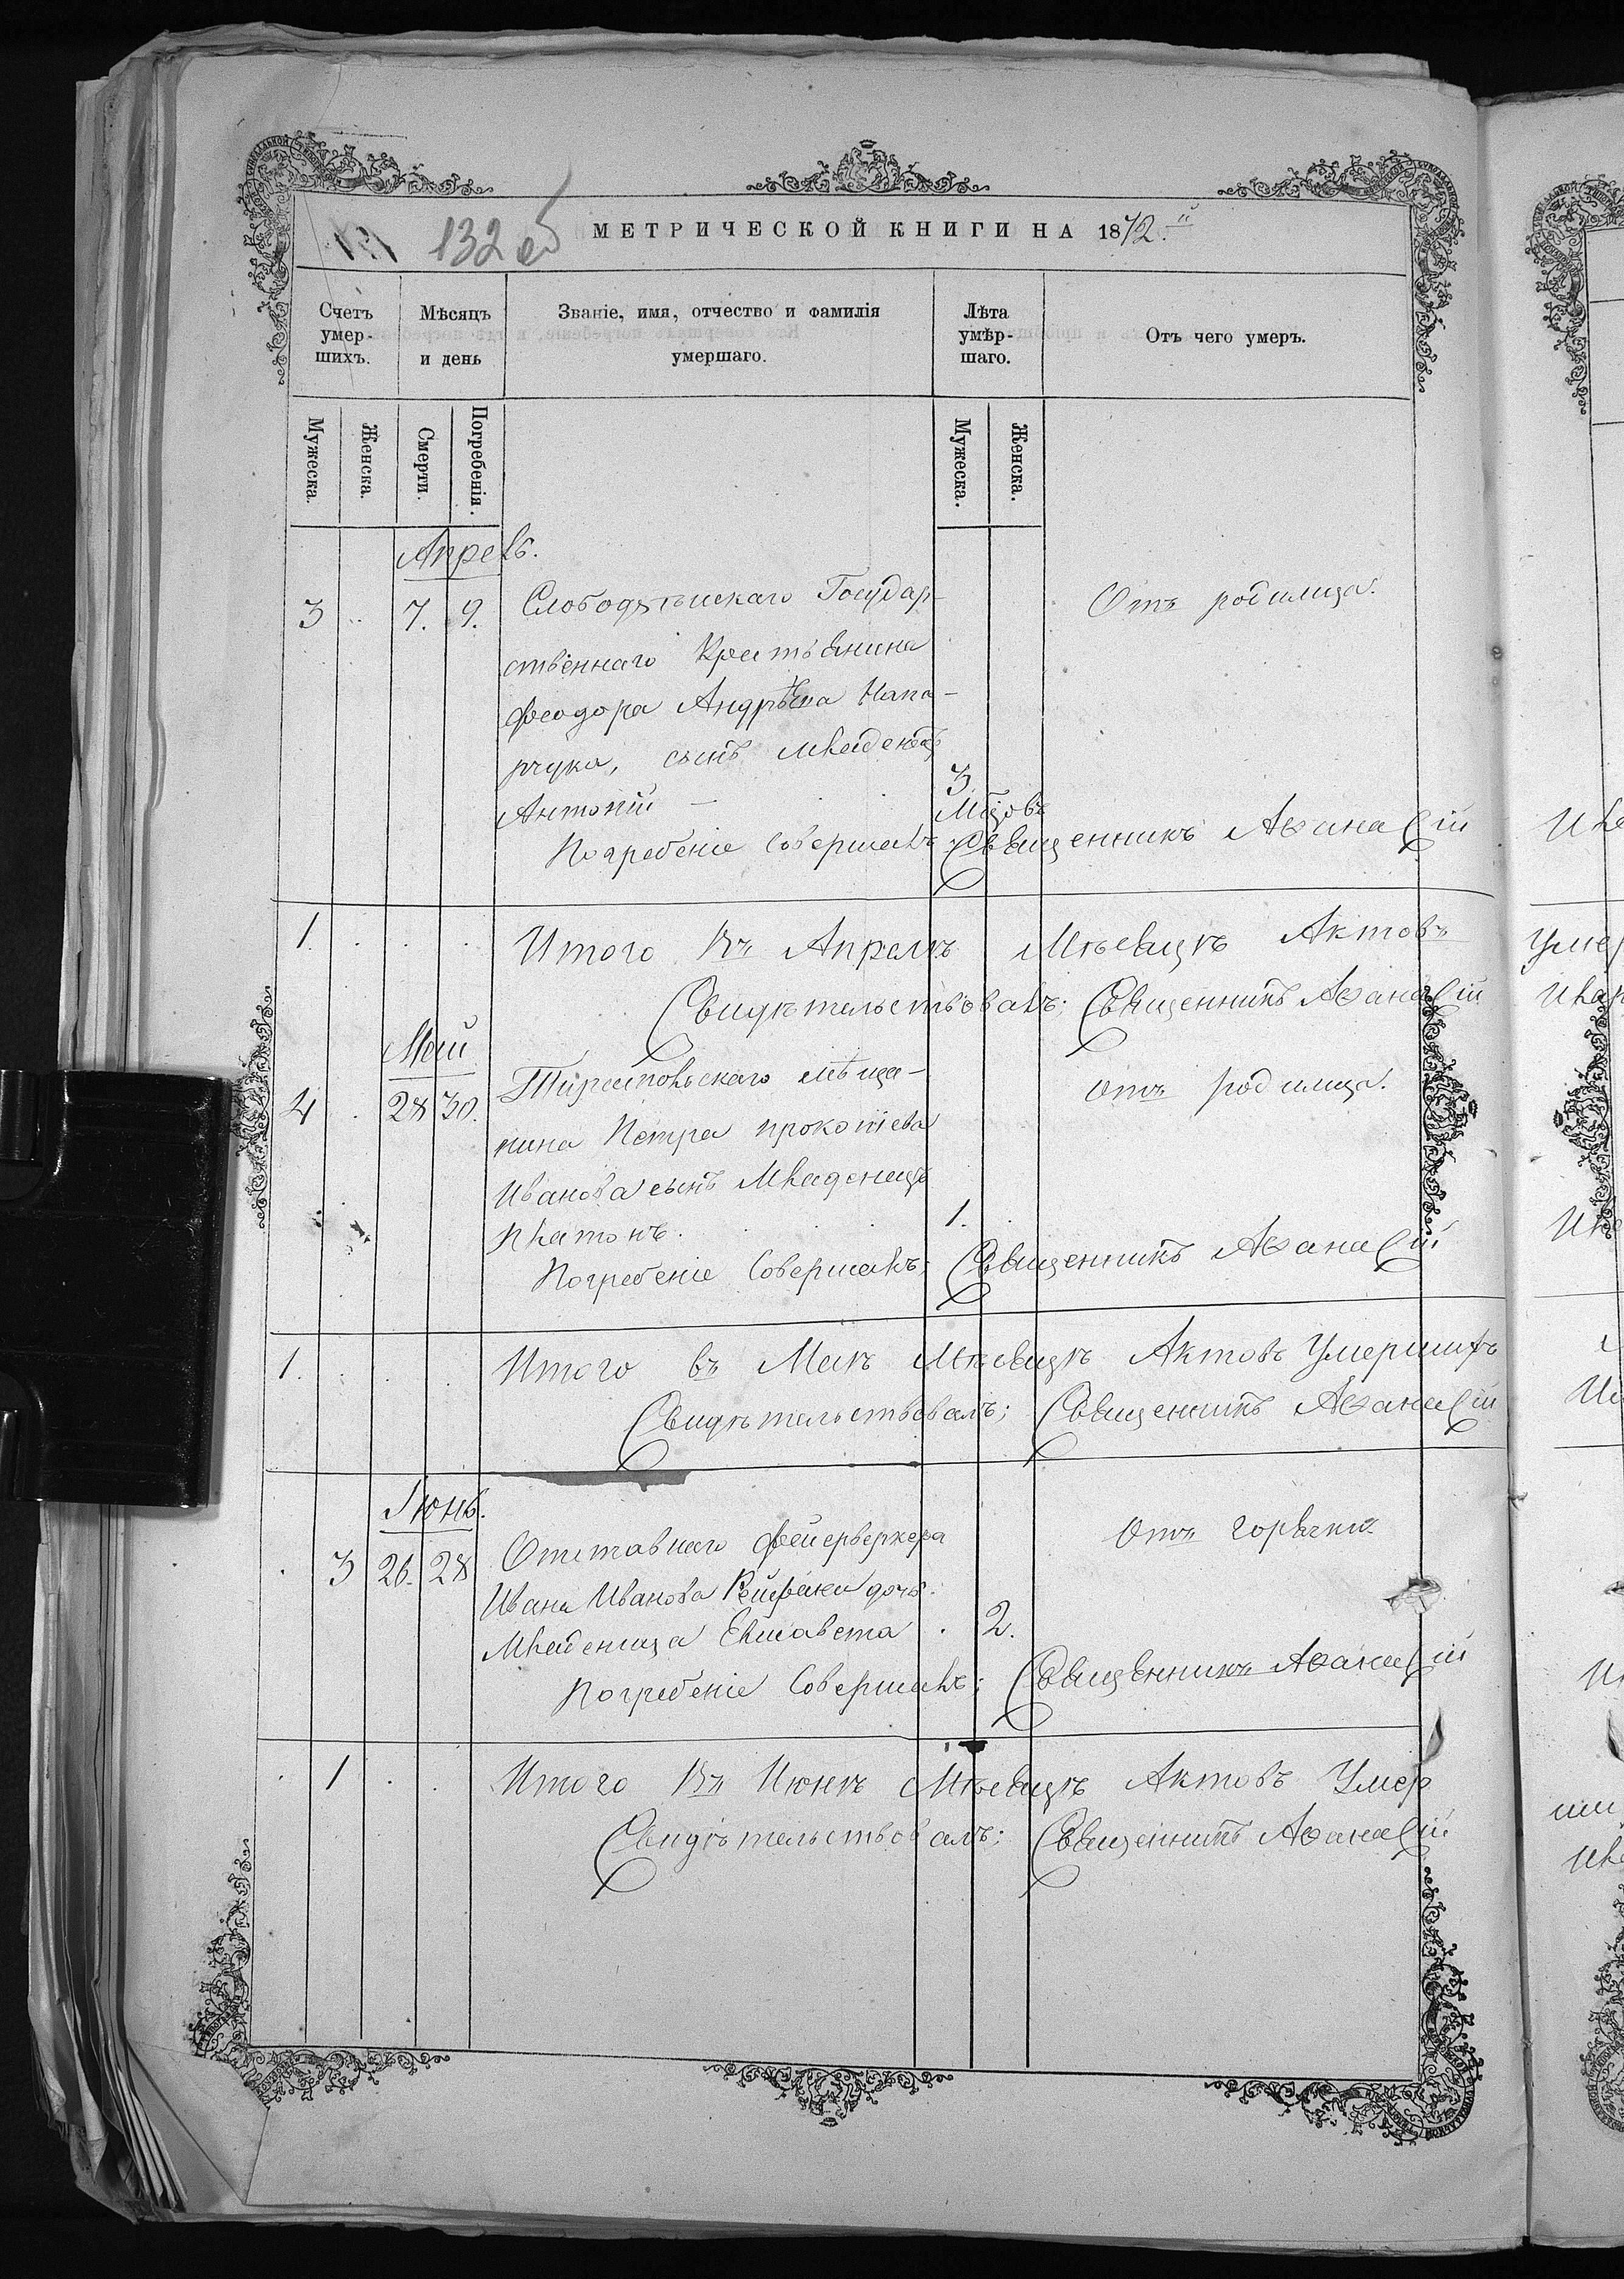 132 об МЕТРИЧЕСКОЙ КНИГИ НА 1872.й
Счетъ умер-шихъ. Мѣсяцъ и день Званіе, имя, отчество и фамилія умершаго. Лѣта умѣр-шаго. Отъ чего умеръ.
Мужеска. Женска. Смерти. Погребенія. Мужеска. Женска.
Апрель.
3 7. 9. Слободзѣйскаго Государ- Отъ родимца.
ственнаго Крестьянина
Феодора Андрѣева
сынъ младенецъ 3
Антоній Мцовъ
Погребеніе Совершалъ Священникъ Аѳанасій
1. Итого Въ Апрелѣ Мѣсяцѣ Актовъ
Свидѣтельствовалъ; Священникъ Аѳанасій
Май
4 28 30. Тираспольскаго мѣща- Отъ родимца.
нина Петра Прокопіева
Иванова сынъ Младенецъ
Платонъ. 1.
Погребеніе Совершалъ; Священникъ Аѳанасій
1. Итого въ Маѣ Мѣсяцѣ Актовъ Умершихъ
Свидѣтельствовалъ; Священникъ Аѳанасій
Іюнь.
3 26. 28 Отставнаго Фейерверкера Отъ горячки
Ивана Иванова дочь
Младеница Елисавета 2.
Погребеніе Совершалъ; Священникъ Аѳанасій
1 Итого Въ Июнѣ Мѣсяцѣ Актовъ Умер
Свидѣтельствовалъ; Священникъ Аѳанасій